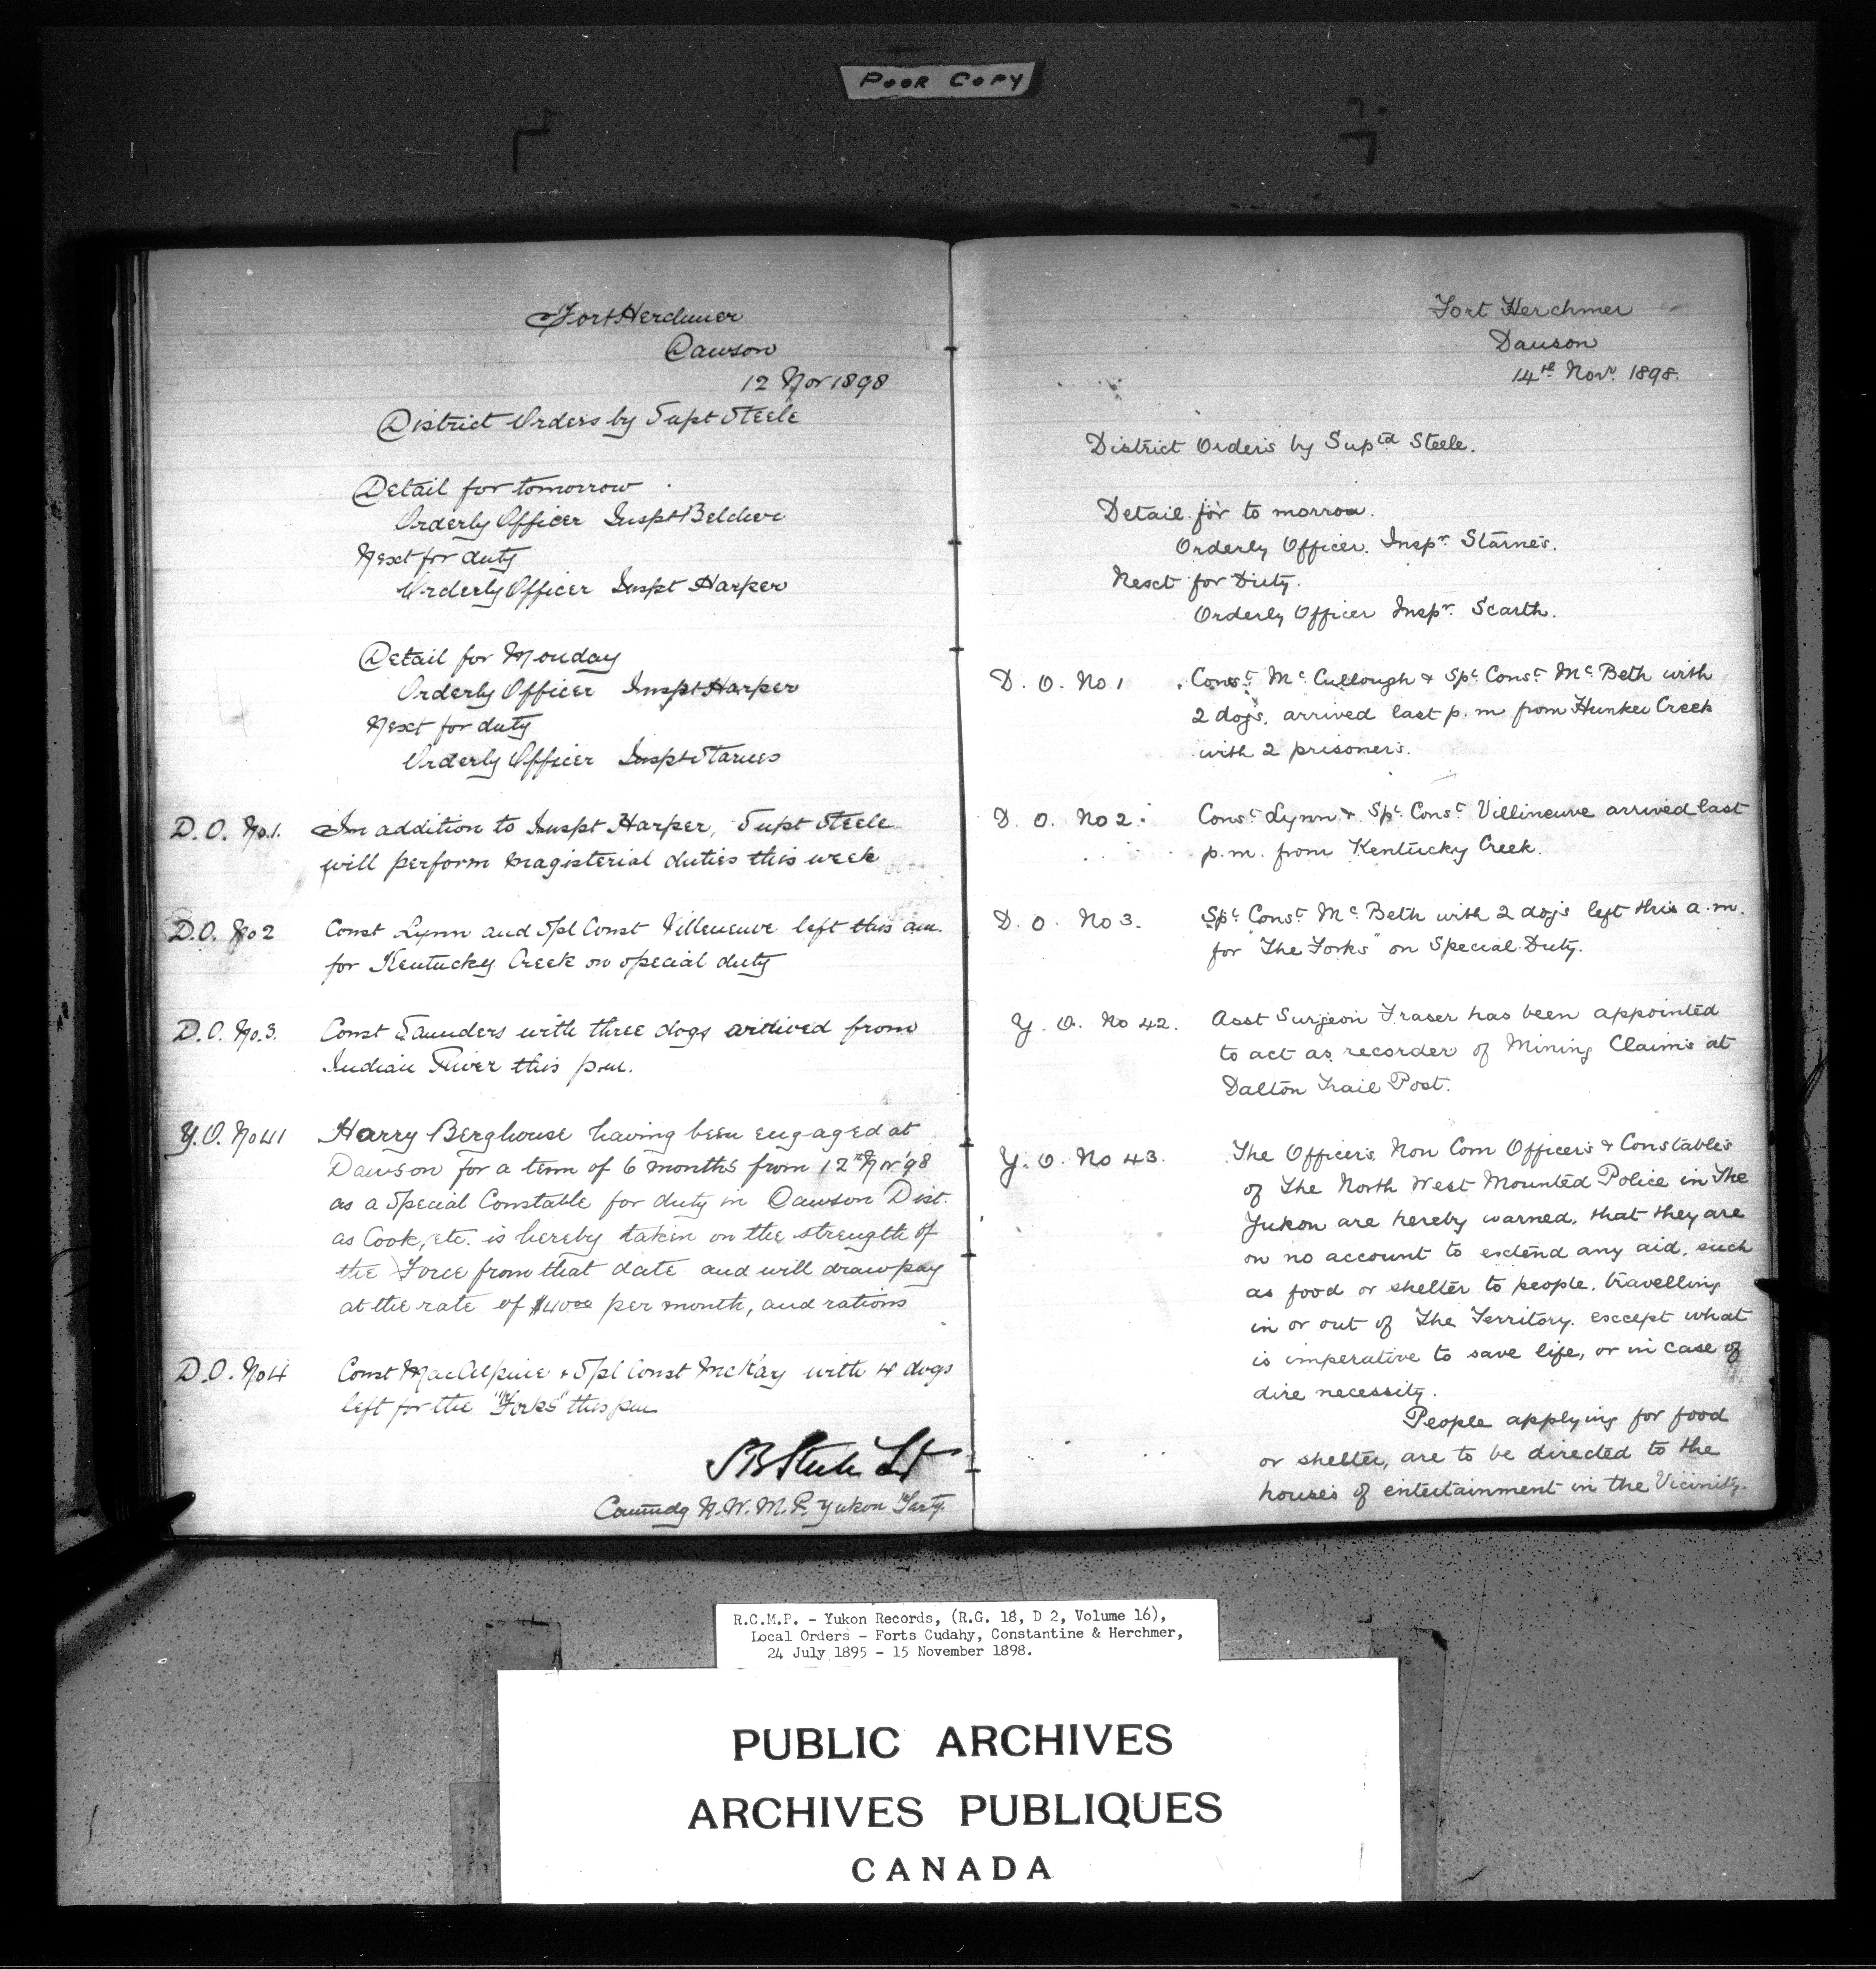 POOR COPY
Fort Herchmer
Dawson
12 Nov 1898
District Orders by Supt Steele
Detail for tomorrow
Orderly Officer Inspt Belcher
Next for duty
Orderly Officer Inspt Harper
Detail for Monday
Orderly Officer Inspt Harper
Next for duty
Orderly Officer Inspt Starnes
D.O. No.1. In addition to Inspt Harper, Supt Steele
will perform magisterial duties this week
D.O. No 2 Const Lynn and Spl Const Villeneuve left this am.
for Kentucky Creek on special duty
D.O. No.3. Const Saunders with three dogs arrived from
Indian River this p.m.
Y.O. No 41 Harry Berghouse having been engaged at
Dawson for a term of 6 months from 12th Nov '98
as a Special Constable for duty in Dawson Dist.
as Cook, etc. is hereby taken on the strength of
the Force from that date and will draw pay
at the rate of $40 00 per month, and rations
D.O. No 4 Const MacAlpine & Spl Const McKay with 4 dogs
left for the "Forks" this pm
SB Steele Supt
Commdg N.W.M.P. Yukon Terty.
Fort Herchmer
Dawson
14th Novr. 1898.
District Orders by Suptd Steele.
Detail for to morrow.
Orderly Officer. Inspr. Starnes.
Next for Duty.
Orderly Officer Inspr. Scarth.
D. O. No 1 Const. Mc Cullough & Spl. Const. Mc Beth with
2 dogs, arrived last p.m from Hunker Creek
with 2 prisoners.
D. O. No 2. Const. Lynn & Spl. Const. Villineuve arrived last
p.m. from Kentucky Creek.
D. O. No 3. Spl. Const. Mc Beth with 2 dogs left this a.m.
for "The Forks" on Special Duty.
Y. O. No 42. Asst Surgeon Fraser has been appointed
to act as recorder of Mining Claims at
Dalton Trail Post.
Y. O. No 43. The Officers, Non Com Officers & Constables
of The North West Mounted Police in The
Yukon are hereby warned, that they are
on no account to extend any aid, such
as food or shelter to people, travelling
in or out of The Territory. except what
is imperative to save life, or in case of
dire necessity.
People applying for food
or shelter, are to be directed to the
houses of entertainment in the Vicinity.
R.C.M.P. - Yukon Records, (R.G. 18, D 2, Volume 16),
Local Orders - Forts Cudahy, Constantine & Herchmer,
24 July 1895 - 15 November 1898.
PUBLIC ARCHIVES
ARCHIVES PUBLIQUES
CANADA